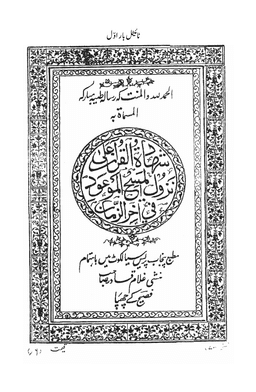 ٹائیٹل بار اوّل
الحمد للہ والمنت کہ رسالہ طیبہ مبارکہ
المسماۃ بہ
شھادۃ القرآن علی
نزول المسیح الموعود
فی آخر الزمان
مطبع پنجاب پریس سیالکوٹ میں باہتمام
منشی غلام قادر صاحب
فصیح کے چھپا
قیمت